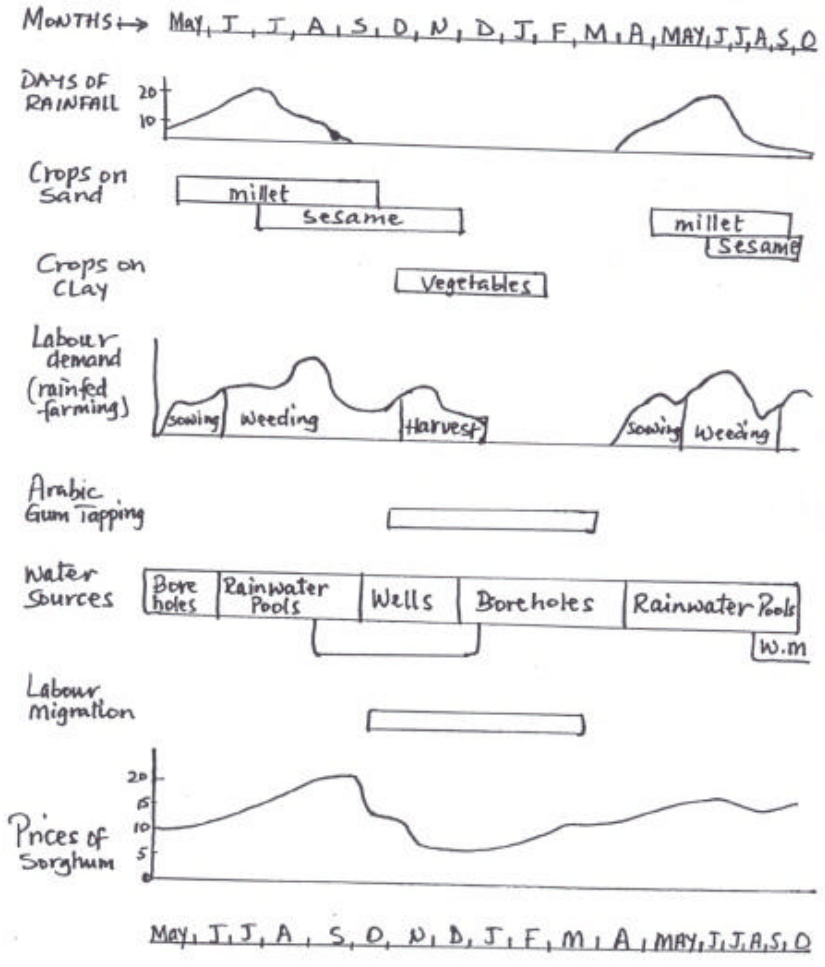 MONTHS → May, J, J, A, S, O, N, D, J, F, M, A, MAY, J, J, A, S, O
DAYS OF
RAINFALL
20
10
Crops on
Sand
millet
sesame
millet
Sesame
Crops on
CLay
Vegetables
Labour
demand
(rainfed
farming)
Sowing
Weeding
Harvest
Sowing
Weeding
Arabic
Gum Tapping
Water
Sources
Bore
holes
Rainwater
Pools
Wells
Boreholes
Rainwater Pools
W.m
Labour
Migration
20
15
10
5
0
Prices of
Sorghum
May, J, J, A, S, O, N, D, J, F, M, A, MAY, J, J, A, S, O